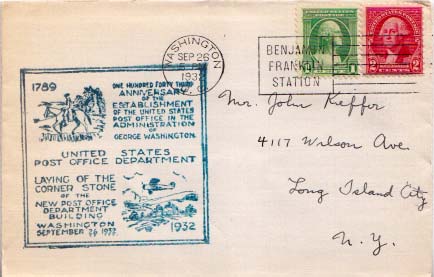 1789
ONE HUNDRED FORTY THIRD
ANNIVERSARY
OF THE
ESTABLISHMENT
OF THE UNITED STATES
POST OFFICE IN THE
ADMINISTRATION
OF
GEORGE WASHINGTON.
UNITED STATES
POST OFFICE DEPARTMENT
LAYING OF THE
CORNER STONE
OF THE
NEW POST OFFICE
DEPARTMENT
BUILDING
WASHINGTON
SEPTEMBER 1932
1932
WASHINGTON
SEP 26
1932
D.C.
BENJAMIN
FRANKLIN
STATION
1
2 CENTS 2
Mr. John Kieffer
4117 Wilson Ave
Long Island City
N.Y.